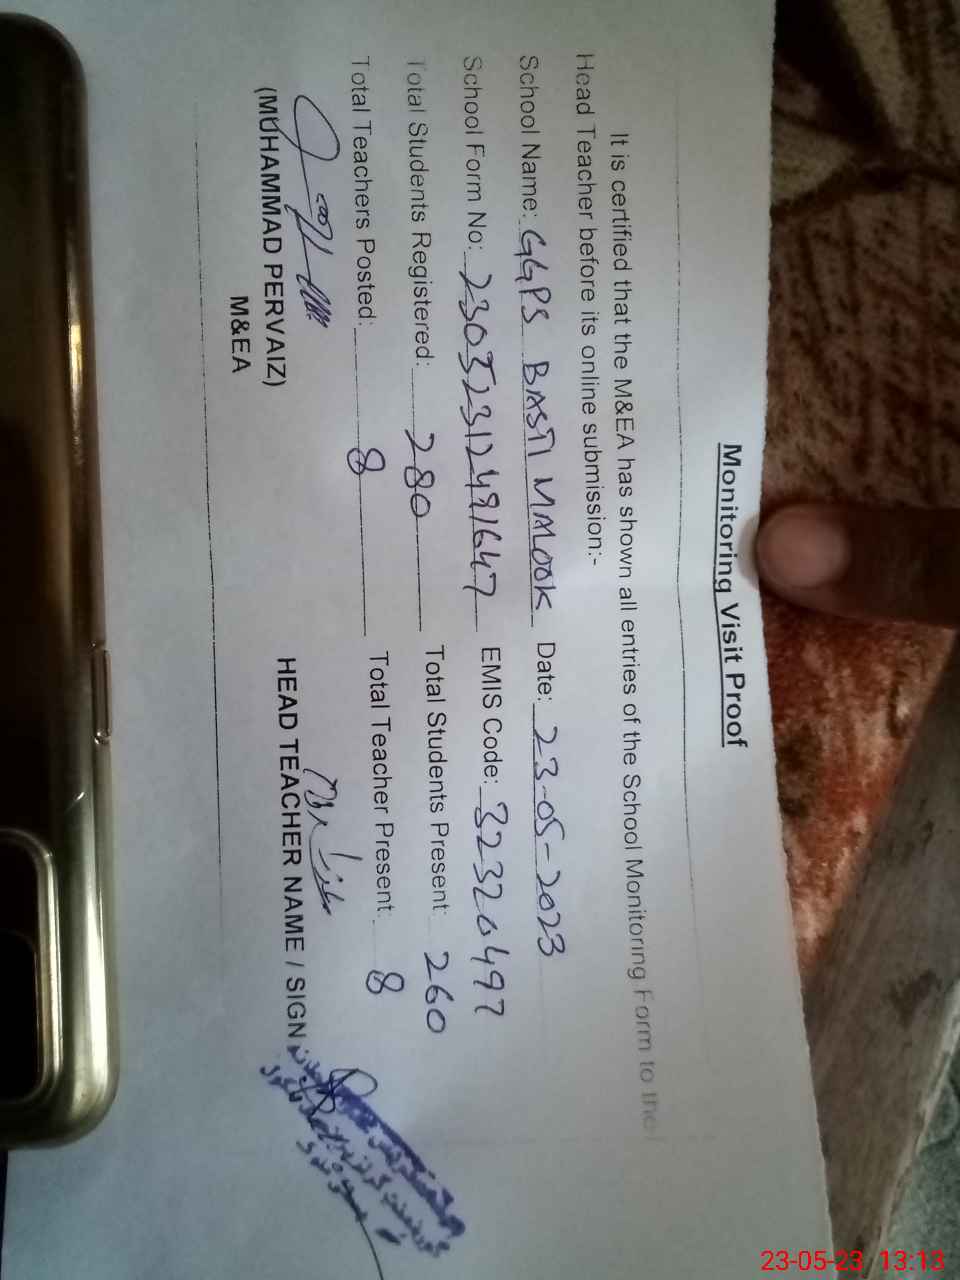 Monitoring Visit Proof
It is certified that the M&EA has shown all entries of the School Monitoring Form to the
Head Teacher before its online submission:-
School Name: GGPS BASTI MALOOK Date: 23-05-2023
School Form No: 230523124981647 EMIS Code: 32320497
Total Students Registered: 280 Total Students Present: 260
Total Teachers Posted: 8 Total Teacher Present: 8
(MUHAMMAD PERVAIZ) HEAD TEACHER NAME / SIGN
M&EA
23-05-23 13:13